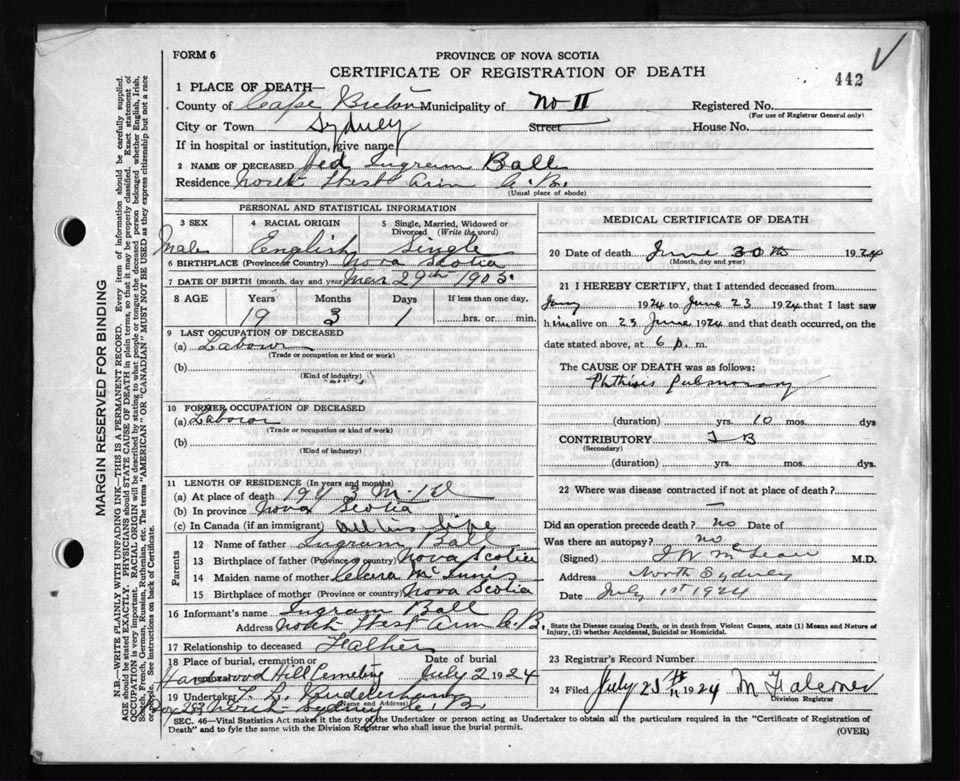 FORM 6
PROVINCE OF NOVA SCOTIA
CERTIFICATE OF REGISTRATION OF DEATH
442
1 PLACE OF DEATH—
County of Cape Breton Municipality of No II Registered No.
(For use of Registrar General only)
City or Town Sydney Street House No.
If in hospital or institution, give name
2 NAME OF DECEASED Ingram Ball
Residence North West Arm C.B.
(Usual place of abode)
PERSONAL AND STATISTICAL INFORMATION
3 SEX 4 RACIAL ORIGIN 5 Single, Married, Widowed or Divorced (Write the word)
Male English Single
6 BIRTHPLACE (Province or Country) Nova Scotia
7 DATE OF BIRTH (month, day and year) Mar 29th 1905
8 AGE Years Months Days If less than one day,
19 3 1 hrs. or min.
9 LAST OCCUPATION OF DECEASED
(a) Labour
(Trade or occupation or kind or work)
(b)
(Kind of industry)
10 FORMER OCCUPATION OF DECEASED
(a) Labour
(Trade or occupation or kind or work)
(b)
(Kind of industry)
11 LENGTH OF RESIDENCE (In years and months)
(a) At place of death 19 Y 3 M. 1 d
(b) In province Nova Scotia
(c) In Canada (if an immigrant) all his life
Parents
12 Name of father Ingram Ball
13 Birthplace of father (Province or country) Nova Scotia
14 Maiden name of mother
15 Birthplace of mother (Province or country) Nova Scotia
16 Informant's name Ingram Ball
Address North West Arm C.B.
17 Relationship to deceased Father
18 Place of burial, cremation or Date of burial
Hardwood Hill Cemetery July 2 1924
19 Undertaker
(Name and Address)
Box 283 North Sydney C.B
MEDICAL CERTIFICATE OF DEATH
20 Date of death June 30th 1924
(Month, day and year)
21 I HEREBY CERTIFY, that I attended deceased from
Jany 1924 to June 23 1924 that I last saw
him alive on 23 June 1924 and that death occurred, on the
date stated above, at 6 p. m.
The CAUSE OF DEATH was as follows:
Phthisis pulmonary
(duration) yrs. 10 mos. dys
CONTRIBUTORY T B
(Secondary)
(duration) yrs. mos. dys.
22 Where was disease contracted if not at place of death?
Did an operation precede death? no Date of
Was there an autopsy? no
(Signed) McLean M.D.
Address North Sydney
Date July 1st 1924
State the Disease causing Death, or in death from Violent Causes, state (1) Means and Nature of Injury, (2) whether Accidental, Suicidal or Homicidal.
23 Registrar's Record Number
24 Filed July 1924 M Falconer
Division Registrar
SEC. 46—Vital Statistics Act makes it the duty of the Undertaker or person acting as Undertaker to obtain all the particulars required in the "Certificate of Registration of
Death" and to fyle the same with the Division Registrar who shall issue the burial permit.
(OVER)
MARGIN RESERVED FOR BINDING
N.B.—WRITE PLAINLY WITH UNFADING INK—THIS IS A PERMANENT RECORD. Every item of information should be carefully supplied.
AGE should be stated EXACTLY. PHYSICIANS should STATE CAUSE OF DEATH in plain terms, so that it may be properly classified. Exact statement of
OCCUPATION is very important. RACIAL ORIGIN will be described by stating to what people or tongue the deceased person belonged whether English, Irish,
Scotch, French, German, Russian, Ruthenian, etc. The terms "AMERICAN" or "CANADIAN" MUST NOT BE USED as they express citizenship but not a race
or people. See instructions on back of Certificate.